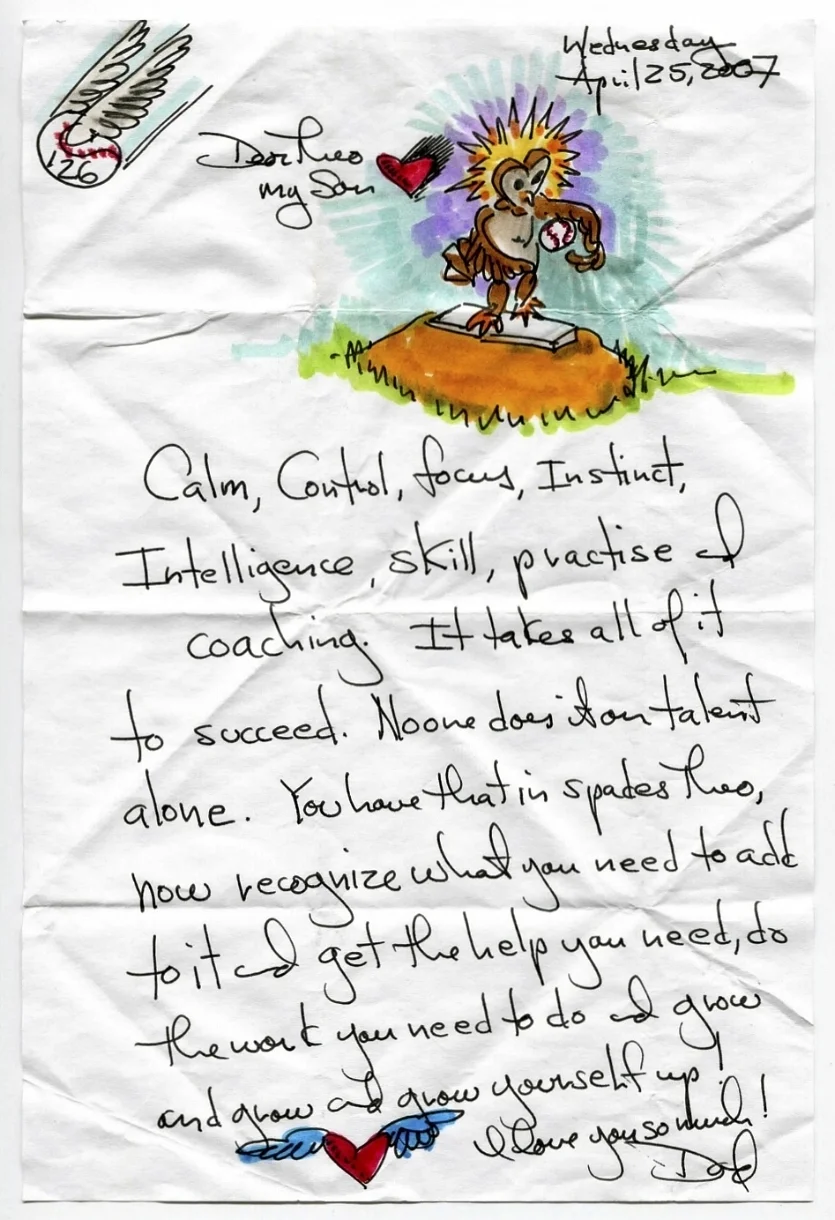 Wednesday
April 25, 2007
126
Dear Theo
my Son
Calm, Control, focus, Instinct,
Intelligence, skill, practise and
coaching. It takes all of it
to succeed. No one does it on talent
alone. You have that in spades Theo,
now recognize what you need to add
to it and get the help you need, do
the work you need to do and grow
and grow and grow yourself up!
I love you so much!
Dad